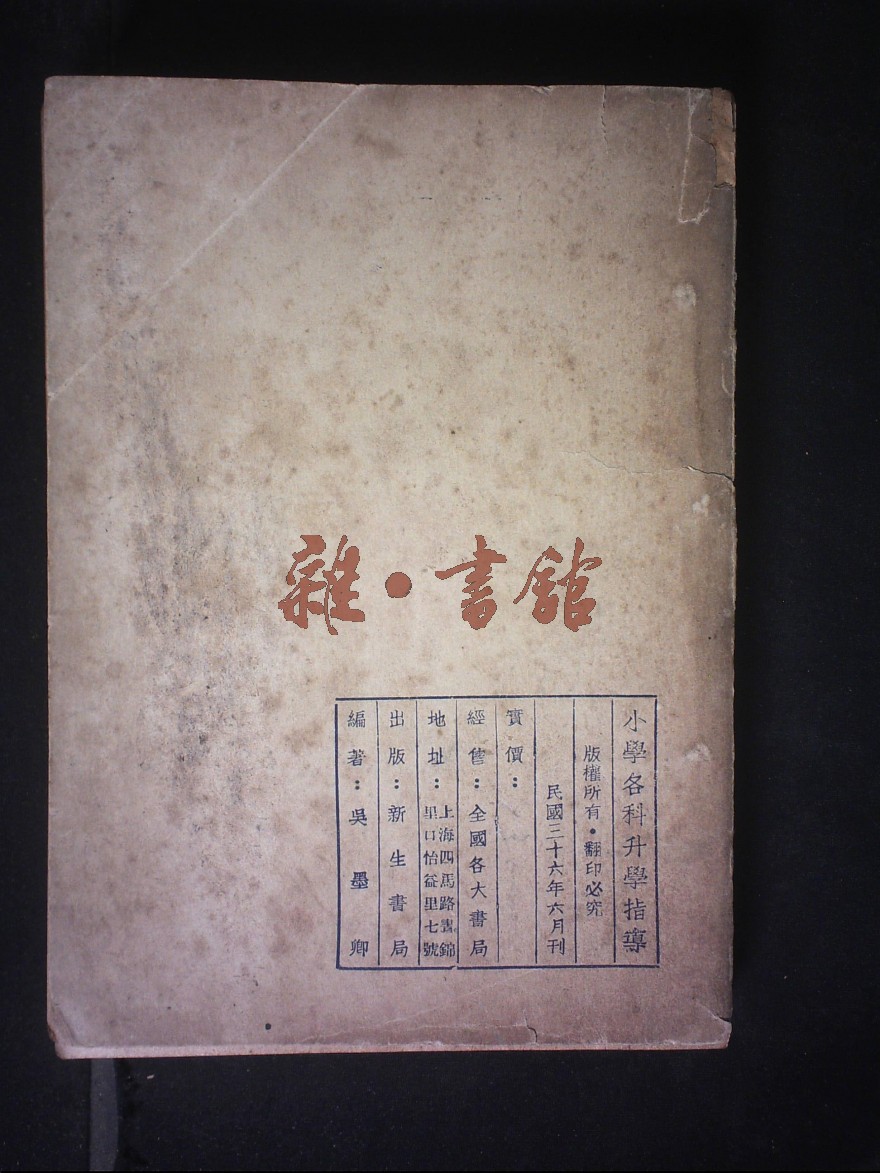 雜•書館
小學各科升學指導
版權所有•翻印必究
民國三十六年六月刊
實價：
經售：全國各大書局
地址：上海四馬路書錦
里口怡益里七號
出版：新生書局
編著：吳墨卿